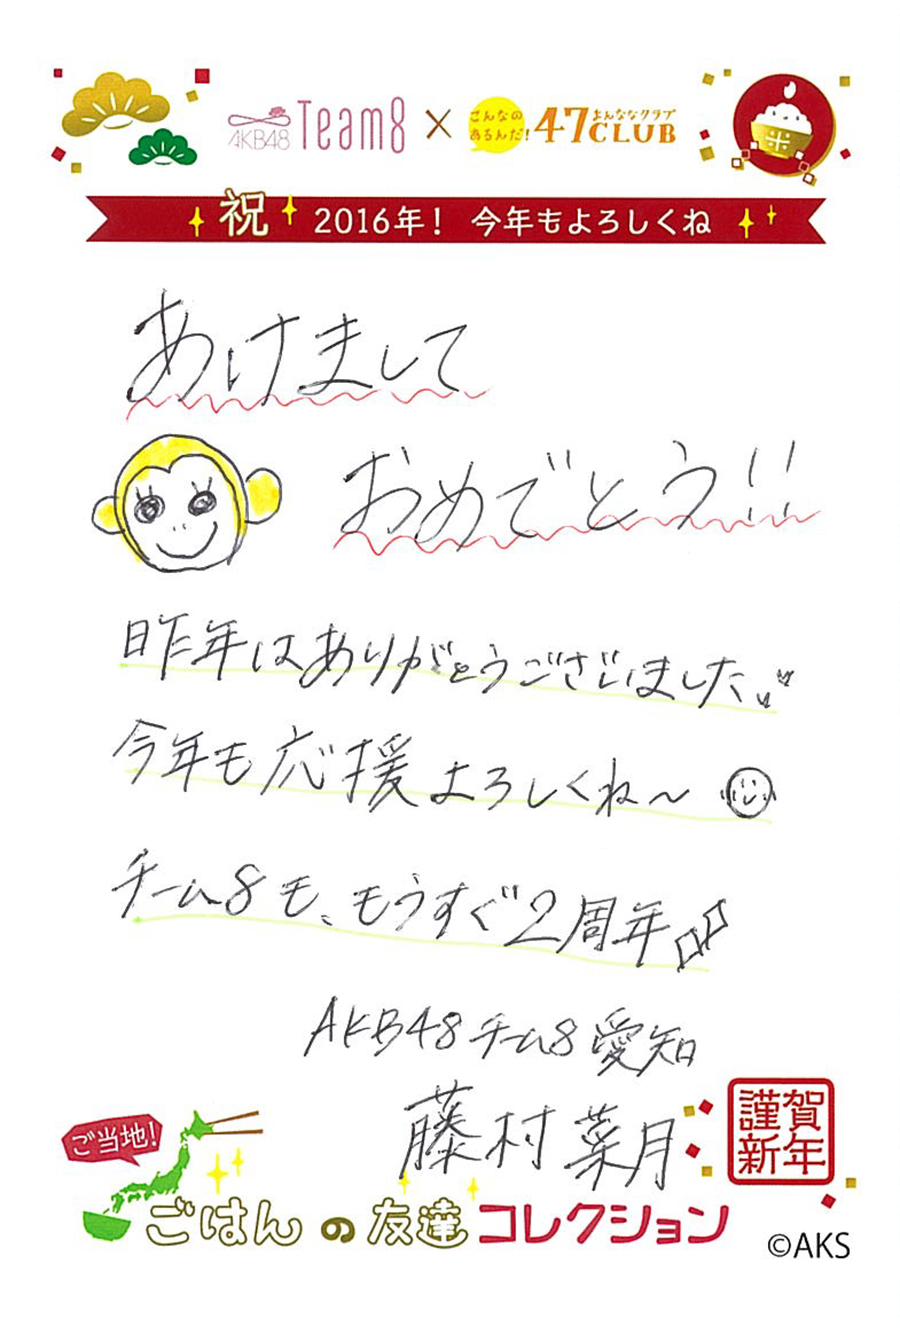 AKB48 Team8 × こんなのあるんだ! 47CLUB よんななクラブ
祝 2016年! 今年もよろしくね
あけまして
おめでとう!!
昨年はありがとうございました
今年も応援よろしくね〜
チーム8も、もうすぐ2周年♪
AKB48チーム8愛知
藤村菜月
謹賀新年
ご当地!
ごはんの友達コレクション
©AKS